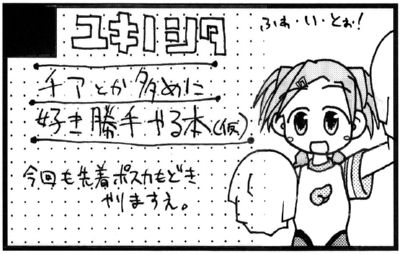 ユキノシタ
ふぁ・い・とぉ!
チアとか多めに
好き勝手やる本(仮)
今回も先着ポスカもどき
やりますえ。